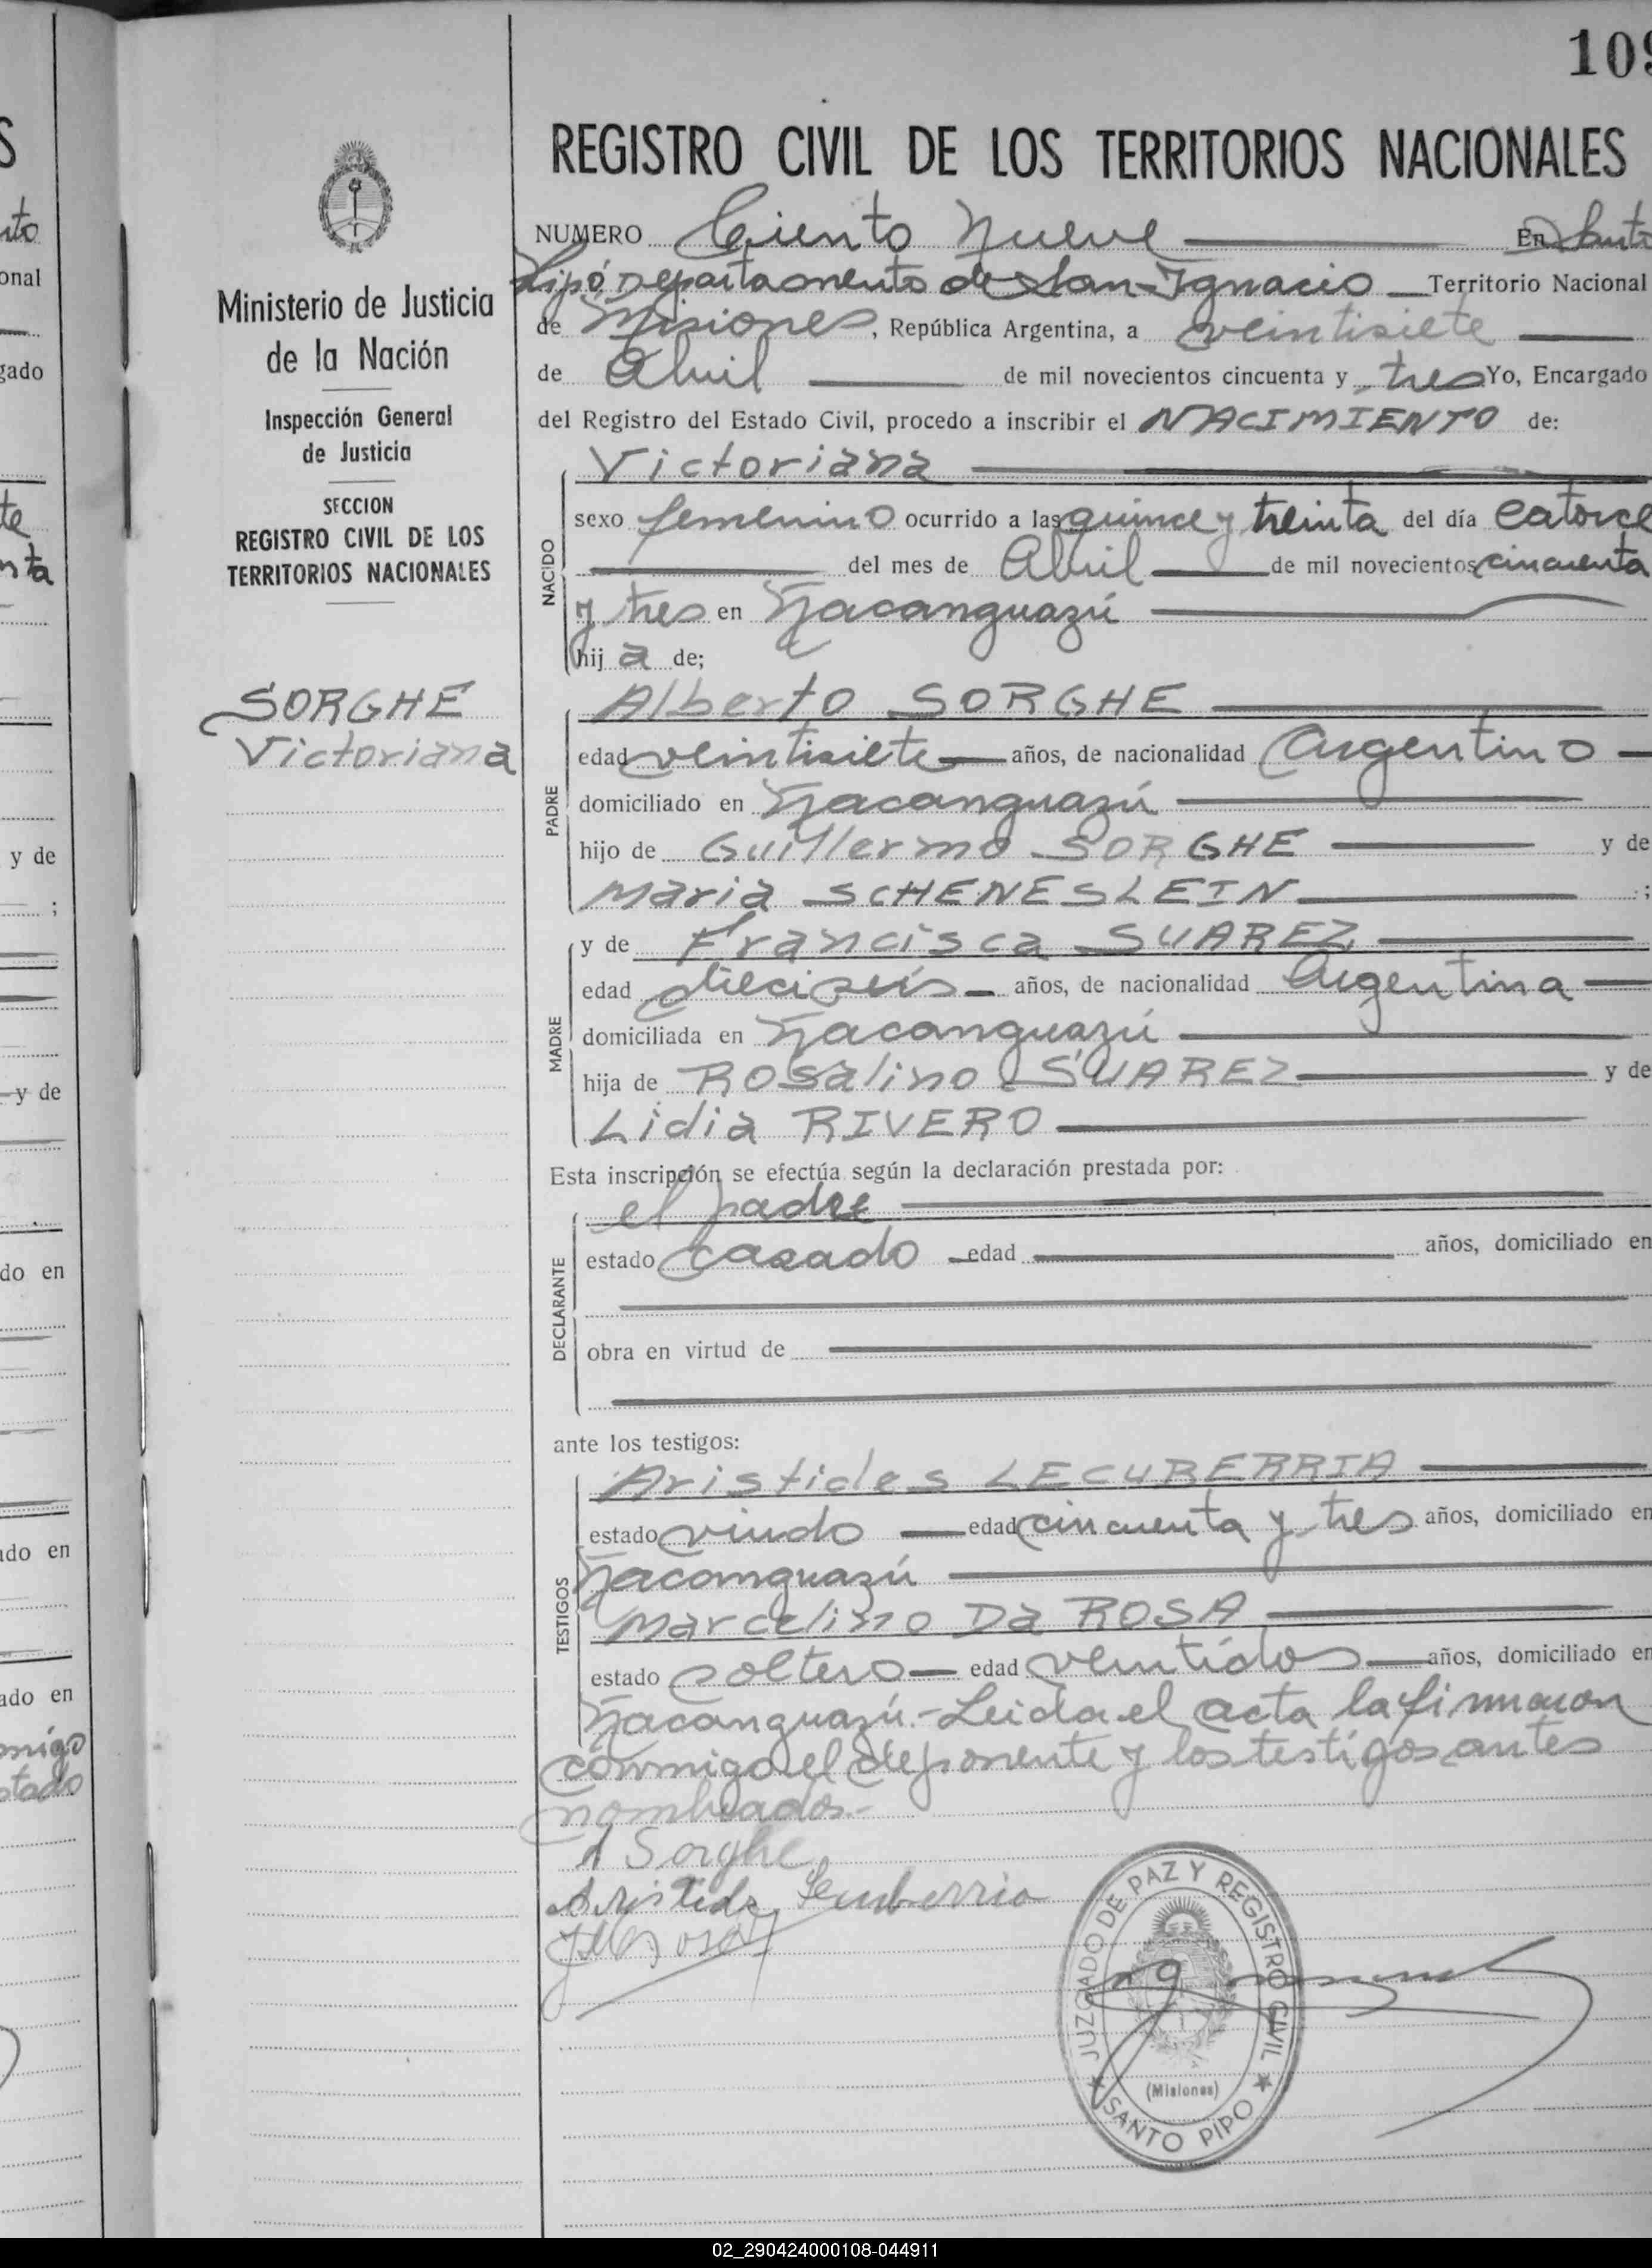 109
REGISTRO CIVIL DE LOS TERRITORIOS NACIONALES
NUMERO Ciento Nueve En Santo
Pipó Departamento de San Ignacio Territorio Nacional
de Misiones, República Argentina, a veintisiete
de Abril de mil novecientos cincuenta y tres Yo, Encargado
del Registro del Estado Civil, procedo a inscribir el NACIMIENTO de:
Ministerio de Justicia
de la Nación
Inspección General
de Justicia
SECCION
REGISTRO CIVIL DE LOS
TERRITORIOS NACIONALES
SORGHE
Victoriana
NACIDO
Victoriana
sexo femenino ocurrido a las quince y treinta del día catorce
del mes de Abril de mil novecientos cincuenta
y tres en Ñacanguazú
hija de;
PADRE
Alberto SORGHE
edad veintisiete años, de nacionalidad Argentino
domiciliado en Ñacanguazú
hijo de Guillermo SORGHE y de
Maria SCHENESLEIN ;
MADRE
y de Francisca SUAREZ
edad dieciseis años, de nacionalidad Argentina
domiciliada en Ñacanguazú
hija de Rosalino SUAREZ y de
Lidia RIVERO
Esta inscripción se efectúa según la declaración prestada por:
DECLARANTE
el padre
estado casado edad años, domiciliado en
obra en virtud de
ante los testigos:
TESTIGOS
Aristides LECUBERRIA
estado viudo edad cincuenta y tres años, domiciliado en
Ñacanguazú
Marcelino Da ROSA
estado soltero edad veintidos años, domiciliado en
Ñacanguazú.- Leida el acta la firmaron
conmigo el deponente y los testigos antes
nombrados.-
A Sorghe
Aristides Lecuberria
JUZGADO DE PAZ Y REGISTRO CIVIL
(Misiones)
SANTO PIPO
02_290424000108-044911